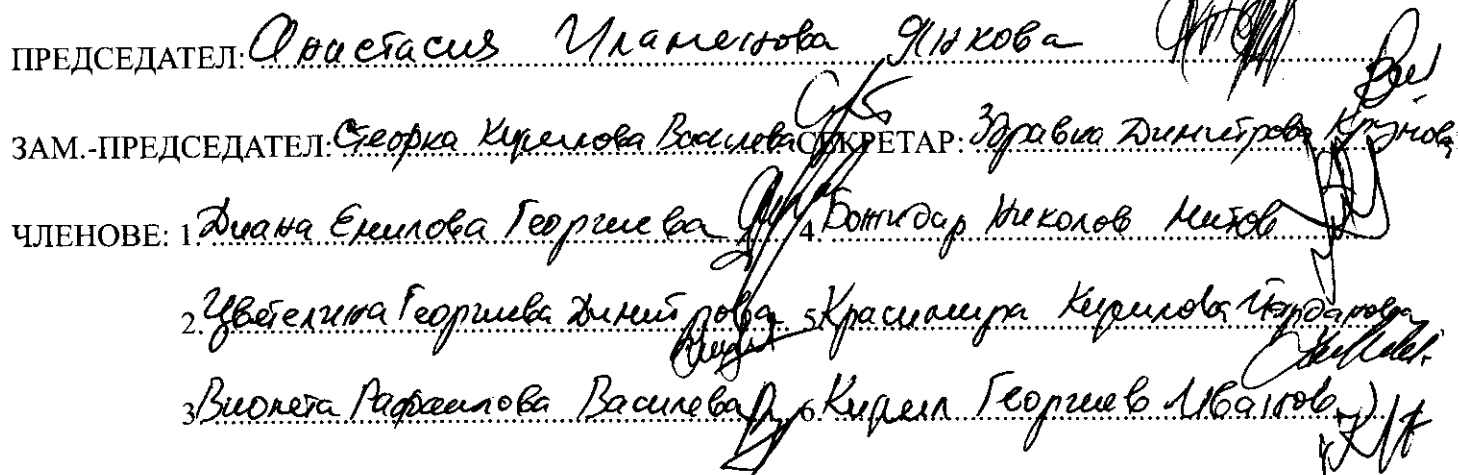 ПРЕДСЕДАТЕЛ: Анастасия Пламенова Янкова
ЗАМ.-ПРЕДСЕДАТЕЛ: Стефка Кирилова Василева СЕКРЕТАР: Здравка Димитрова
ЧЛЕНОВЕ: 1. Диана Емилова Георгиева 4. Божидар Николов Митов
2. Цветелина Георгиева Димитрова 5. Красимира Кирилова Йорданова
3. Виолета Рафаилова Василева 6. Кирил Георгиев Иванов